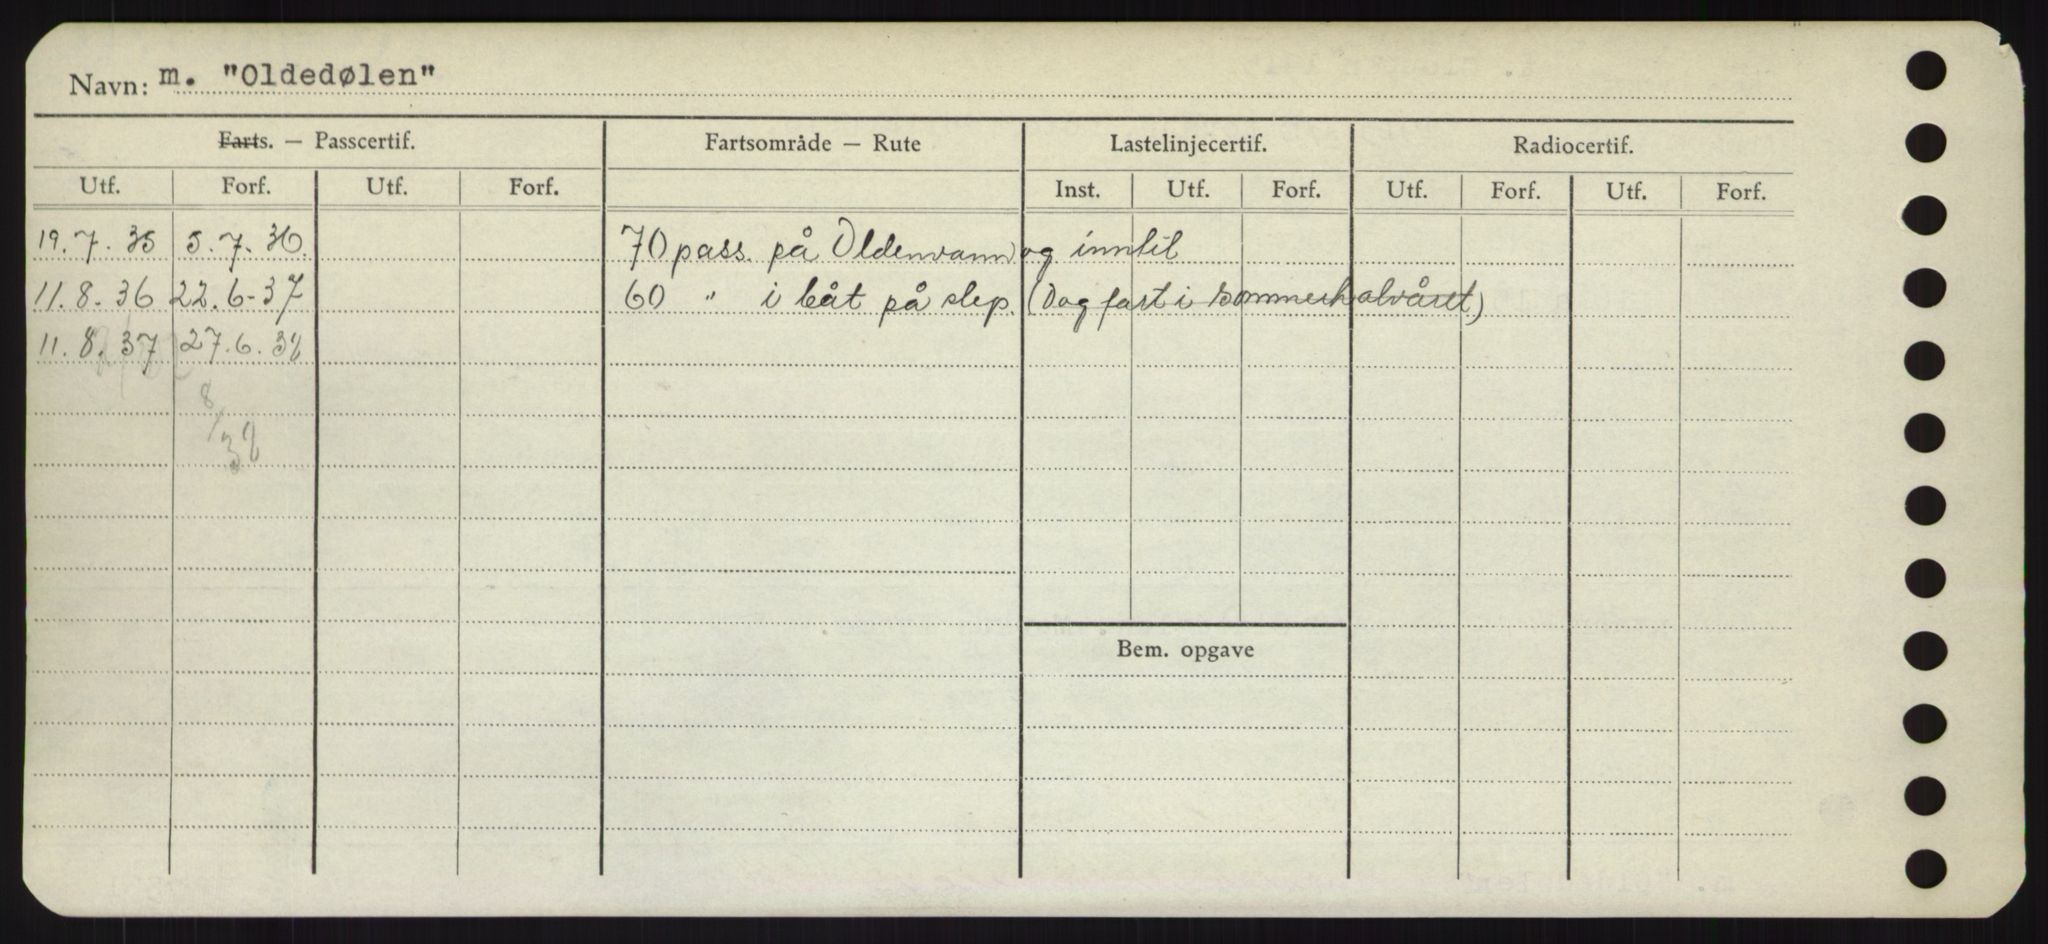 Navn: m. "Oldedølen"
Farts. — Passcertif. Fartsområde — Rute Lastelinjecertif. Radiocertif.
Utf. Forf. Utf. Forf. Inst. Utf. Forf. Utf. Forf. Utf. Forf.
19.7.35 5.7.36. 70 pass. på Oldenvann og inntil
11.8.36 22.6-37 60 " i båt på slep. (Dagfart i sommerhalvåret)
11.8.37 27.6.38
8/38
Bem. opgave